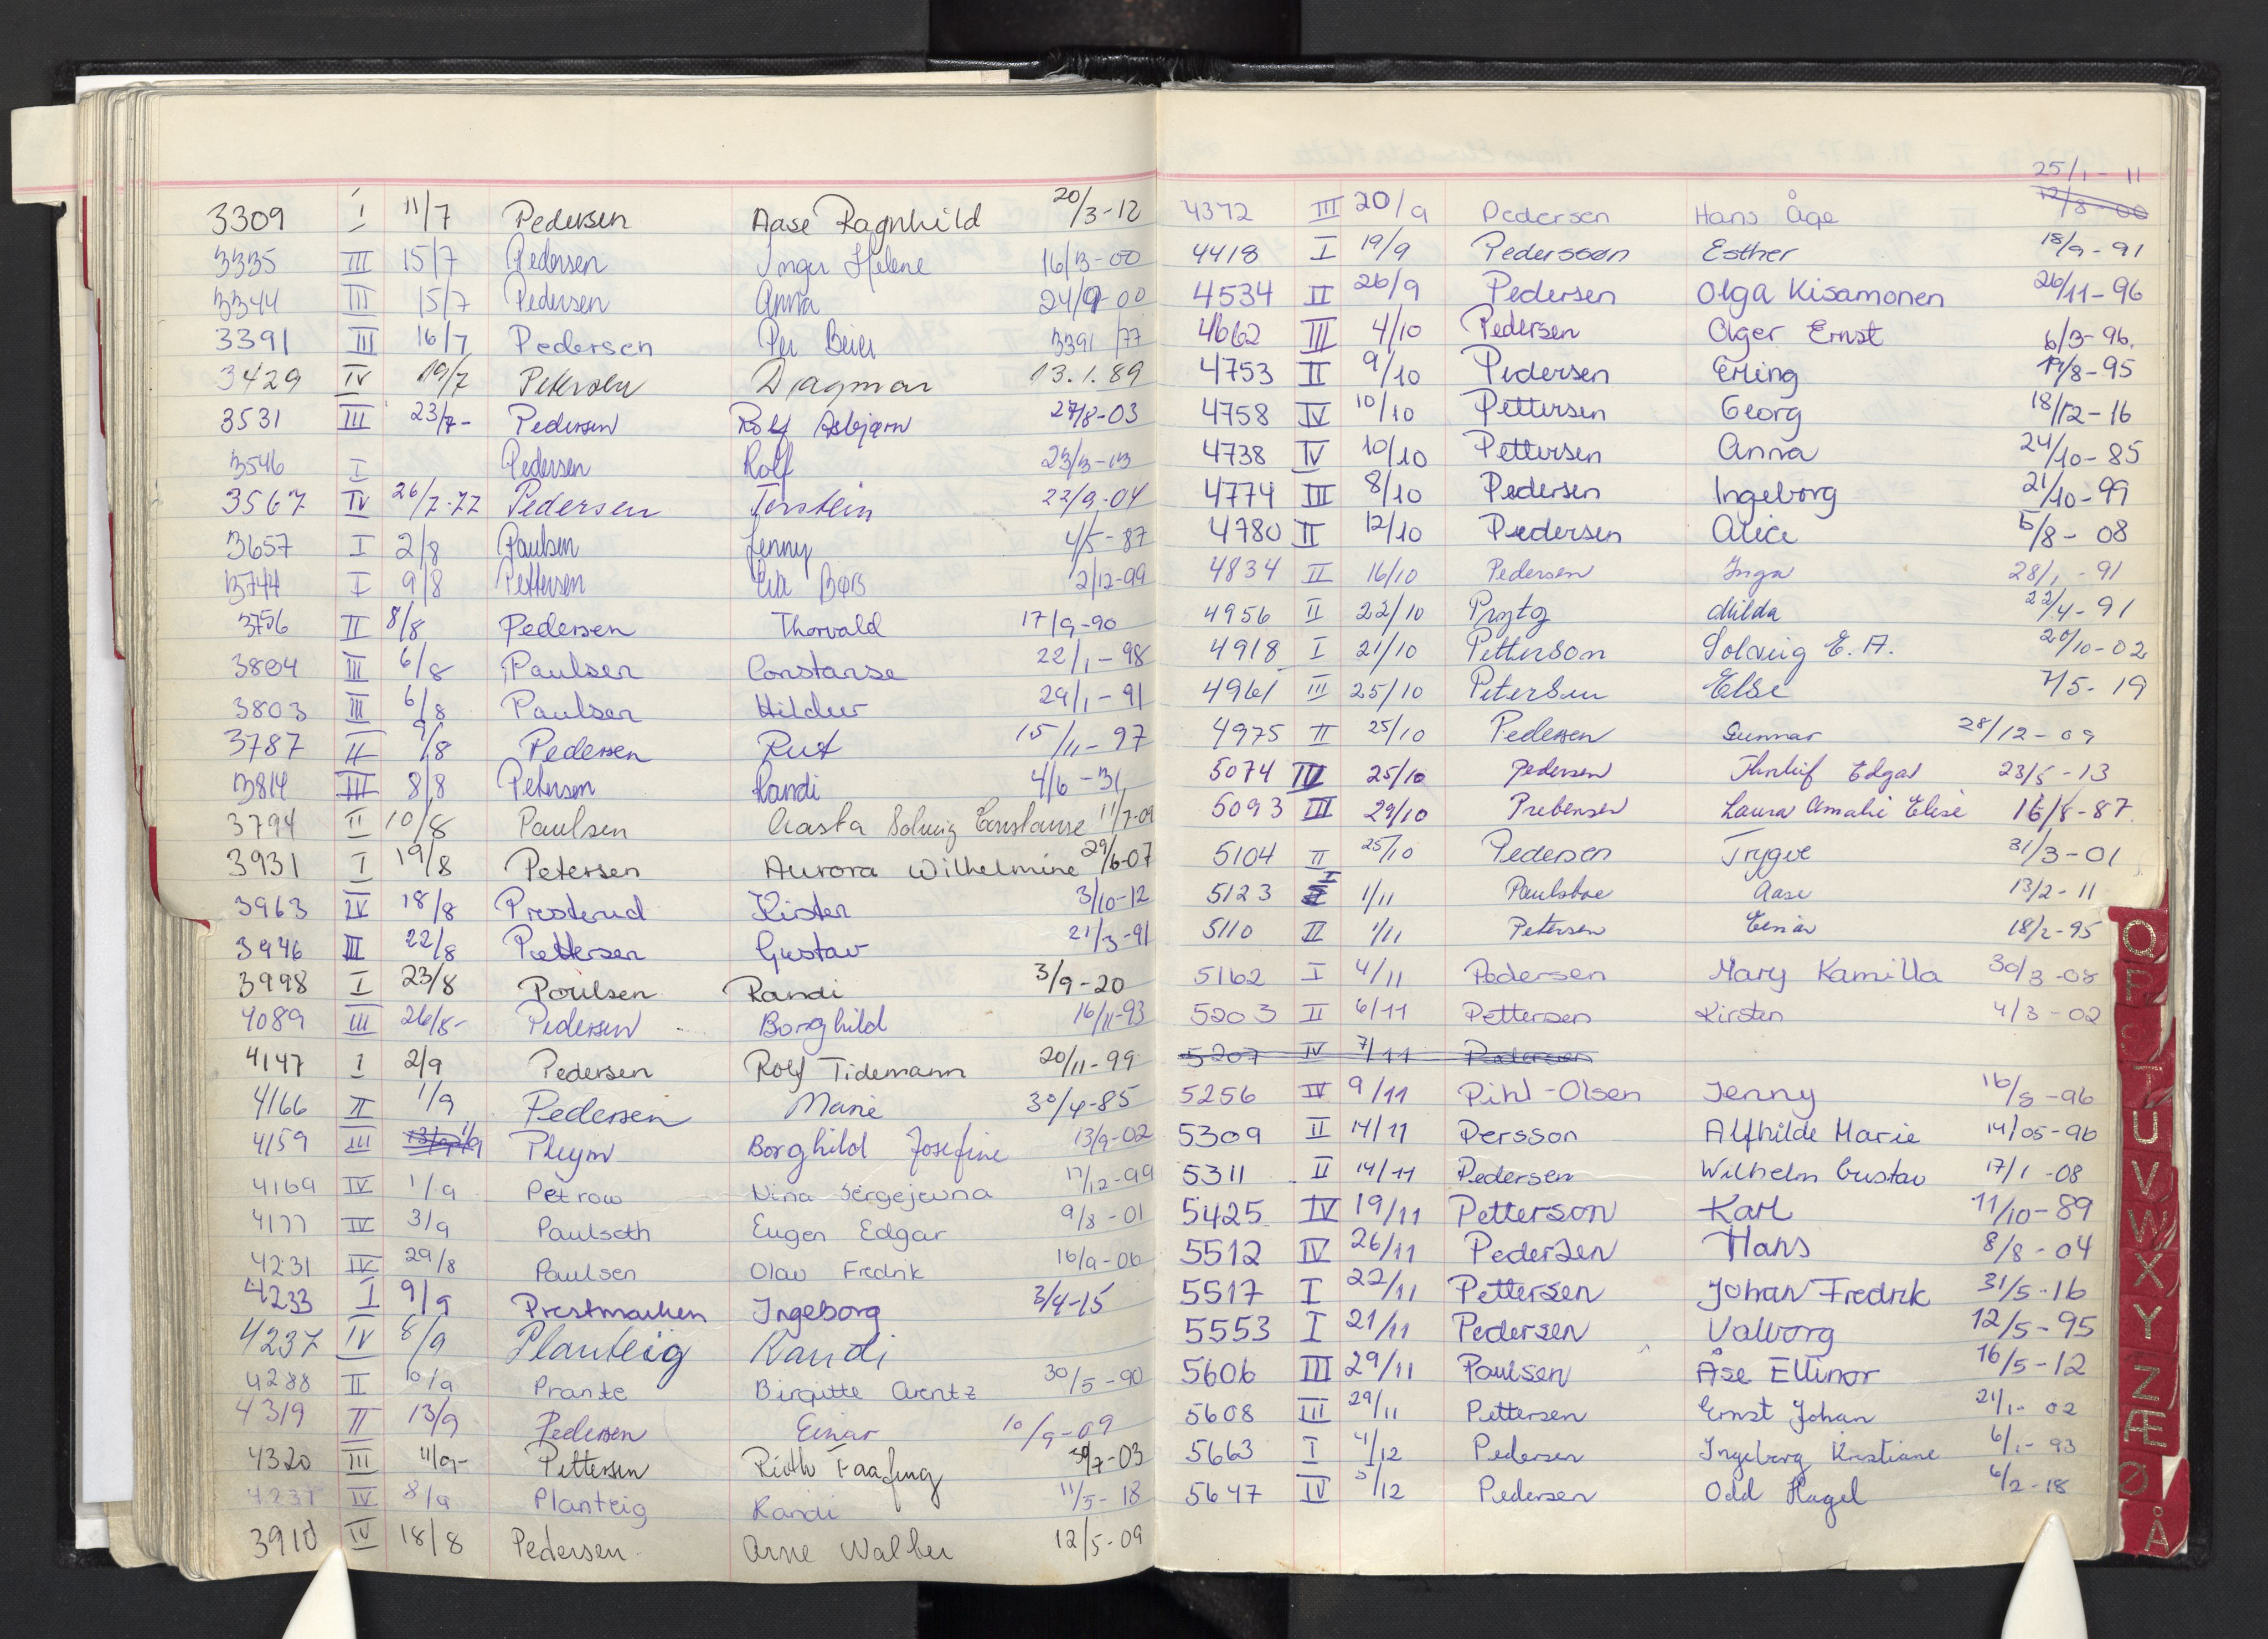 3309 I 11/7 Pedersen Aase Ragnhild 20/3-12
3335 III 15/7 Pedersen Inger Helene 16/3-00
3344 III 15/7 Pedersen Anna 24/9-00
3391 III 16/7 Pedersen Per Beier 3391/77
3429 IV 19/7 Petersen Dagmar 13.1.89
3531 III 23/7- Pedersen Rolf Asbjørn 27/8-03
3546 I Pedersen Rolf 23/3-13
3567 IV 26/7-77 Pedersen Torstein 22/9-04
3657 I 2/8 Paulsen Jenny 4/5-87
3744 I 9/8 Pettersen Eva 2/12-99
3756 II 8/8 Pedersen Thorvald 17/9-90
3804 III 6/8 Paulsen Constanse 22/1-98
3803 III 6/8 Paulsen Hildur 29/1-91
3787 II 9/8 Pedersen Rut 15/11-97
3814 III 8/8 Petersen Randi 4/6-31
3794 II 10/8 Paulsen Aasta Solveig Constanse 11/7-09
3931 I 19/8 Petersen Aurora Wilhelmine 29/6-07
3963 IV 18/8 Prosterud Kirsten 3/10-12
3946 III 22/8 Pettersen Gustav 21/3-91
3998 I 23/8 Poulsen Randi 3/9-20
4089 III 26/8- Pedersen Borghild 16/11-93
4147 I 2/9 Pedersen Rolf Tidemann 20/11-99
4166 II 1/9 Pedersen Marie 30/4-85
4159 III 1/9 Pleym Borghild Josefine 13/9-02
4169 IV 1/9 Petrow Nina Sergejevna 17/12-99
4177 IV 3/9 Paulseth Eugen Edgar 9/8-01
4231 IV 29/8 Paulsen Olav Fredrik 16/9-06
4233 I 9/9 Prestmarken Ingeborg 3/4-15
4237 IV 8/9 Planteig Randi
4288 II 10/9 Prante Birgitte Arentz 30/5-90
4319 II 13/9 Pedersen Einar 10/9-09
4320 III 11/9- Pettersen Ruth Faafeng 30/7-03
4237 IV 8/9 Planteig Randi 11/5-18
3910 IV 18/8 Pedersen Arne Walber 12/5-09
25/1-11
4372 III 20/9 Pedersen Hans Åge 12/8-00
4418 I 19/9 Pederssøn Esther 18/9-91
4534 II 26/9 Pedersen Olga Kisamonen 26/11-96
4662 III 4/10 Pedersen Olger Ernst 6/3-96.
4753 II 9/10 Pedersen Erling 19/8-95
4758 IV 10/10 Pettersen Georg 18/12-16
4738 IV 10/10 Pettersen Anna 24/10-85
4774 III 8/10 Pedersen Ingeborg 21/10-99
4780 II 12/10 Pedersen Alice 5/8-08
4834 II 16/10 Pedersen Inga 28/1-91
4956 II 22/10 Prytz Milda 22/4-91
4918 I 21/10 Petterson Solveig E. A. 20/10-02
4961 III 25/10 Petersen Else 7/5-19
4975 II 25/10 Pedersen Gunnar 28/12-09
5074 IV 25/10 Pedersen Thorleif Edgar 23/5-13
5093 III 29/10 Prebensen Laura Amalie Elise 16/8-87.
5104 II 25/10 Pedersen Trygve 31/3-01
5123 I 1/11 Paulsboe Aase 13/2-11
5110 II 1/11 Petersen Einar 18/2-95
5162 I 4/11 Pedersen Mary Kamilla 30/3-08
5203 II 6/11 Pettersen Kirsten 4/3-02
5207 IV 7/11 Pedersen
5256 IV 9/11 Pihl-Olsen Jenny 16/5-96
5309 II 14/11 Persson Alfhilde Marie 14/05-96
5311 II 14/11 Pedersen Wilhelm Gustav 17/1-08
5425 IV 19/11 Petterson Karl 11/10-89
5512 IV 26/11 Pedersen Hans 8/8-04
5517 I 22/11 Pettersen Johan Fredrik 31/5-16
5553 I 21/11 Pedersen Valborg 12/5-95
5606 III 29/11 Paulsen Åse Ellinor 16/5-12
5608 III 29/11 Pettersen Ernst Johan 21/1-02
5663 I 4/12 Pedersen Ingeborg Kristiane 6/1-93
5647 IV 5/12 Pedersen Odd Hagel 6/2-18
Q
R
T
U
V
W
X
Y
Z
Æ
Ø
Å